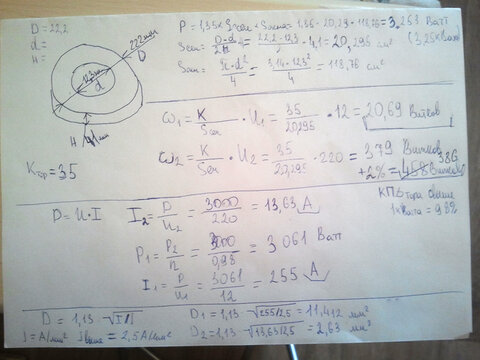 D = 22,2
d =
H =
222мм
D
d
H
Kтор = 35
P = 1,35 × Sсеч × Sокна = 1,35 · 20,29 · 118,76 = 3,253 Ватт
(3,25кВатт)
Sсеч = D-d/2 · H = 22,2 - 12,3/2 · 4,1 = 20,295 см²
Sокн = π · d²/4 = 3,14 · 12,3²/4 = 118,76 см²
ω1 = K/Sсеч · U1 = 35/20,295 · 12 = 20,69 Витков
ω2 = K/Sсеч · U2 = 35/20,295 · 220 = 379 Витков
+2% = 386 Витков
КПД тора свыше
1кВата = 98%
P = U · I
I2 = P/U2 = 3000/220 = 13,63 A
P1 = P2/η = 3000/0,98 = 3061 Ватт
I1 = P/U1 = 3061/12 = 255 A
D = 1,13 · √I/J
J = A/мм² = 2,5 A/мм²
D1 = 1,13 · √255/2,5 = 11,412 мм²
D2 = 1,13 · √13,63/2,5 = 2,63 мм²